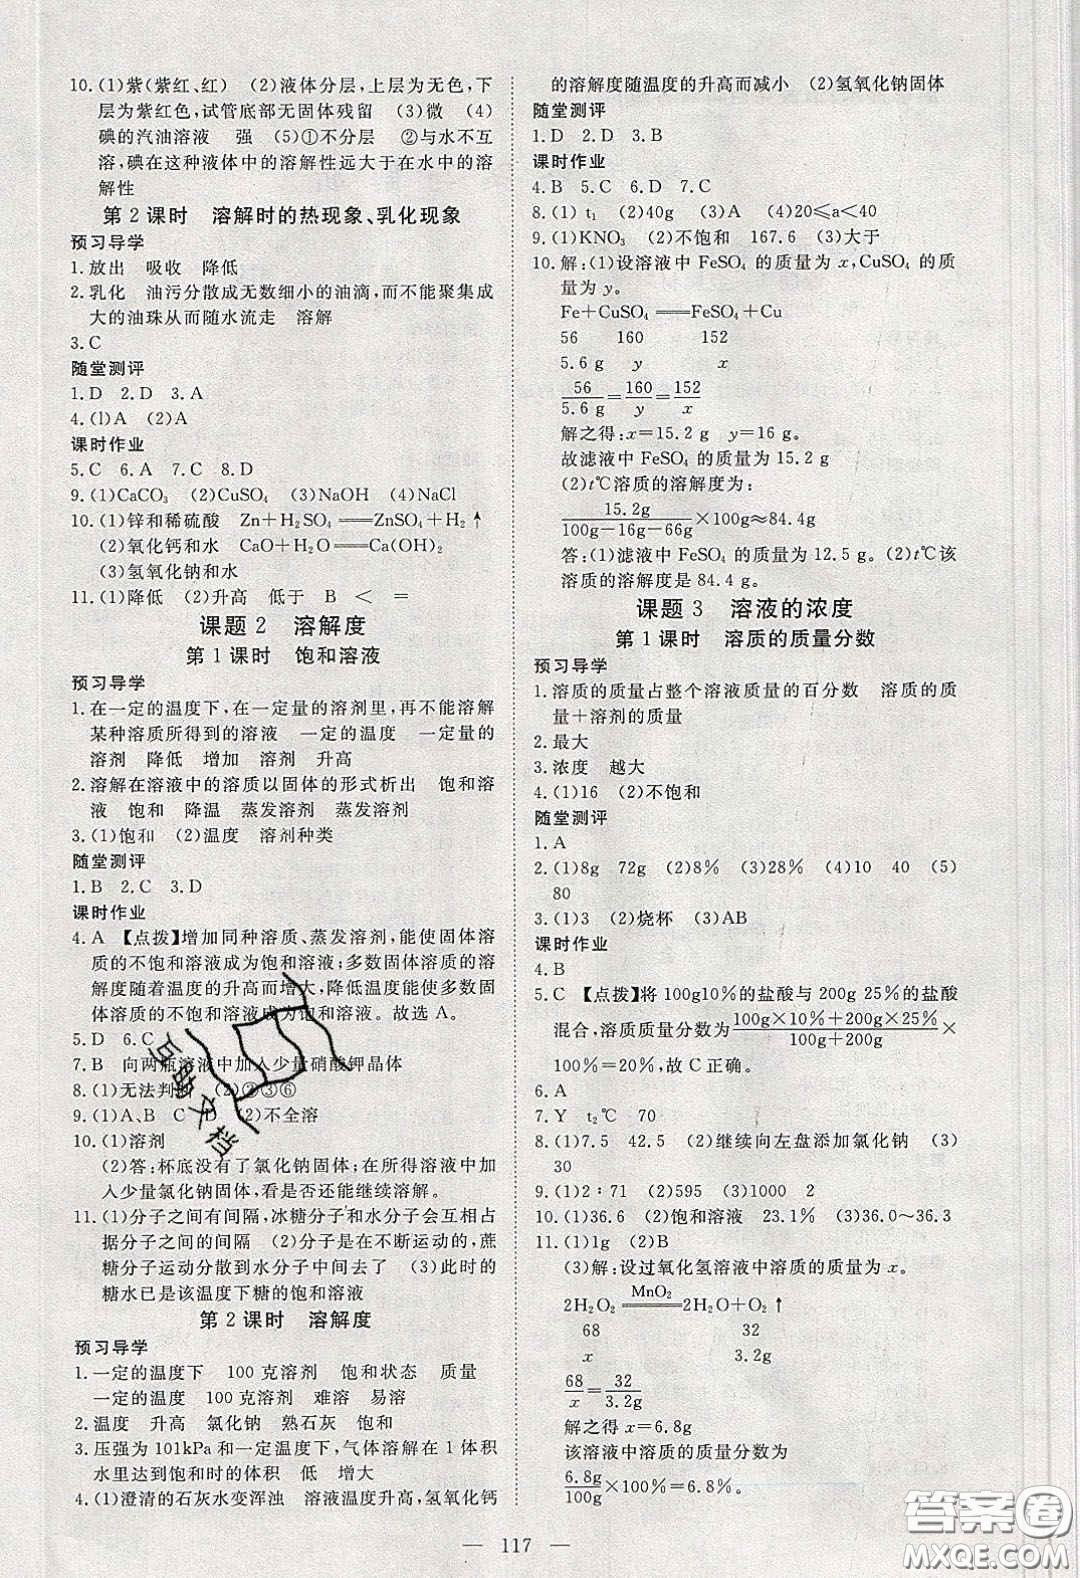 10.(1)紫(紫红、红)　(2)液体分层,上层为无色,下
层为紫红色,试管底部无固体残留　(3)微　(4)
碘的汽油溶液　强　(5)①不分层　②与水不互
溶,碘在这种液体中的溶解性远大于在水中的溶
解性
第2课时　溶解时的热现象、乳化现象
预习导学
1.放出　吸收　降低
2.乳化　油污分散成无数细小的油滴,而不能聚集成
大的油珠从而随水流走　溶解
3.C
随堂测评
1.D　2.D　3.A
4.(1)A　(2)A
课时作业
5.C　6.A　7.C　8.D
9.(1)CaCO₃　(2)CuSO₄　(3)NaOH　(4)NaCl
10.(1)锌和稀硫酸　Zn+H₂SO₄══ZnSO₄+H₂↑
(2)氧化钙和水　CaO+H₂O══Ca(OH)₂
(3)氢氧化钠和水
11.(1)降低　(2)升高　低于　B　<　=
课题2　溶解度
第1课时　饱和溶液
预习导学
1.在一定的温度下,在一定量的溶剂里,再不能溶解
某种溶质所得到的溶液　一定的温度　一定量的
溶剂　降低　增加　溶剂　升高
2.溶解在溶液中的溶质以固体的形式析出　饱和溶
液　饱和　降温　蒸发溶剂　蒸发溶剂
3.(1)饱和　(2)温度　溶剂种类
随堂测评
1.B　2.C　3.D
课时作业
4.A　【点拨】增加同种溶质、蒸发溶剂,能使固体溶
质的不饱和溶液成为饱和溶液;多数固体溶质的溶
解度随着温度的升高而增大,降低温度能使多数固
体溶质的不饱和溶液成为饱和溶液。故选A。
5.D　6.C
7.B　向两瓶溶液中加入少量硝酸钾晶体
8.(1)无法判断　(2)②③⑥
9.(1)A、B　C　D　(2)不全溶
10.(1)溶剂
(2)答:杯底没有了氯化钠固体;在所得溶液中加
入少量氯化钠固体,看是否还能继续溶解。
11.(1)分子之间有间隔,冰糖分子和水分子会互相占
据分子之间的间隔　(2)分子是在不断运动的,蔗
糖分子运动分散到水分子中间去了　(3)此时的
糖水已是该温度下糖的饱和溶液
第2课时　溶解度
预习导学
1.一定的温度下　100克溶剂　饱和状态　质量
一定的温度　100克溶剂　难溶　易溶
2.温度　升高　氯化钠　熟石灰　饱和
3.压强为101kPa和一定温度下,气体溶解在1体积
水里达到饱和时的体积　低　增大
4.(1)澄清的石灰水变浑浊　溶液温度升高,氢氧化钙
的溶解度随温度的升高而减小　(2)氢氧化钠固体
随堂测评
1.D　2.D　3.B
课时作业
4.B　5.C　6.D　7.C
8.(1) t₁　(2)40g　(3)A　(4)20≤a<40
9.(1)KNO₃　(2)不饱和　167.6　(3)大于
10.解:(1)设溶液中FeSO₄的质量为x,CuSO₄的质
量为y。
Fe+CuSO₄══FeSO₄+Cu
56　160　152
5.6 g　y　x
56/5.6 g=160/y=152/x
解之得:x=15.2 g　y=16 g。
故滤液中FeSO₄的质量为15.2 g
(2)t℃溶质的溶解度为:
15.2g/(100g-16g-66g)×100g≈84.4g
答:(1)滤液中FeSO₄的质量为12.5 g。(2)t℃该
溶质的溶解度是84.4 g。
课题3　溶液的浓度
第1课时　溶质的质量分数
预习导学
1.溶质的质量占整个溶液质量的百分数　溶质的质
量+溶剂的质量
2.最大
3.浓度　越大
4.(1)16　(2)不饱和
随堂测评
1.A
2.(1)8g　72g　(2)8%　(3)28%　(4)10　40　(5)
80
3.(1)3　(2)烧杯　(3)AB
课时作业
4.B
5.C　【点拨】将100g10%的盐酸与200g 25%的盐酸
混合,溶质质量分数为(100g×10%+200g×25%)/(100g+200g)×
100%=20%,故C正确。
6.A
7.Y　t₂℃　70
8.(1)7.5　42.5　(2)继续向左盘添加氯化钠　(3)
30
9.(1)2∶71　(2)595　(3)1000　2
10.(1)36.6　(2)饱和溶液　23.1%　(3)36.0～36.3
11.(1)1g　(2)B
(3)解:设过氧化氢溶液中溶质的质量为x。
2H₂O₂══(MnO₂)2H₂O+O₂↑
68　32
x　3.2g
68/x=32/3.2g
解之得x=6.8g
该溶液中溶质的质量分数为
6.8g/100g×100%=6.8%。
117
互助文档
答案圈
MXQE.COM